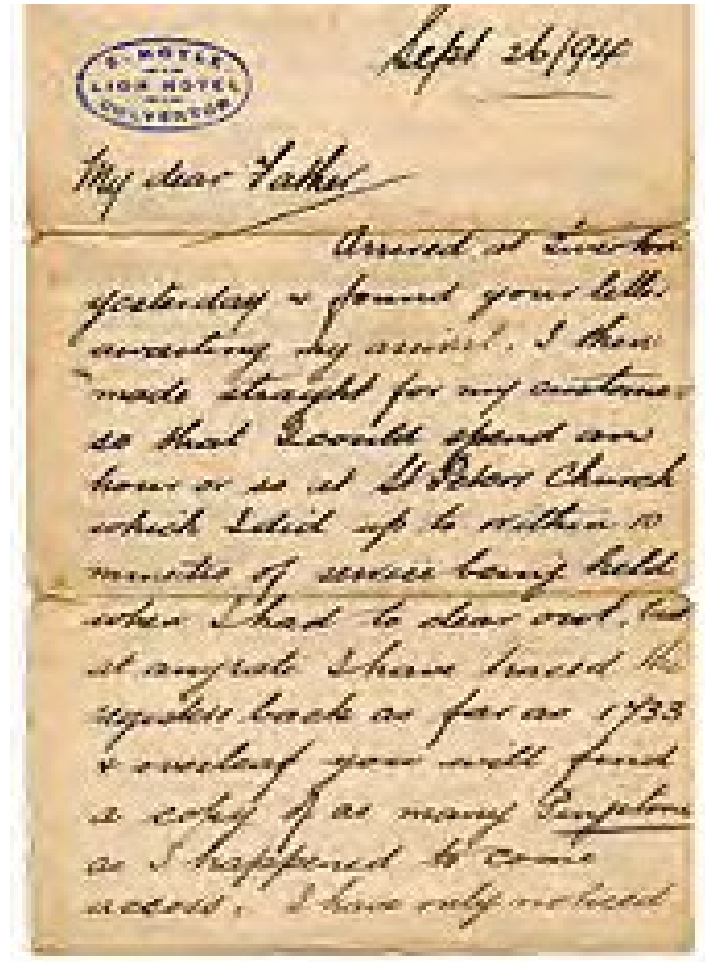 S. HOYLE
LION HOTEL
Sept 26/94
My dear Father
Arrived at Tiverton
yesterday & found your letter
awaiting my arrival. I then
made straight for my customer
so that I could spend an
hour or so at St Peters Church
which I did up to within 10
minutes of service being held
when I had to clear out, but
at anyrate I have traced the
registers back as far as 1733
& overleaf you will find
a copy of as many
as I happened to come
across. I have only noticed